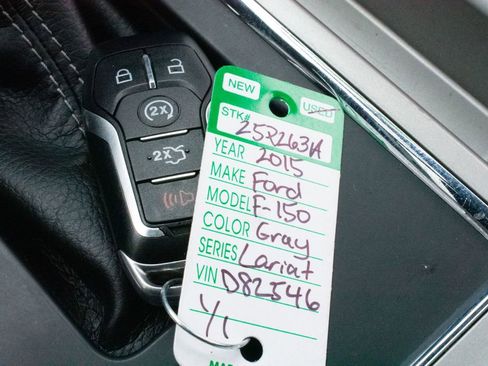 NEW USED
STK# 25P263A
YEAR 2015
MAKE Ford
MODEL F-150
COLOR Gray
SERIES Lariat
VIN D82546
1/1
2x
2x